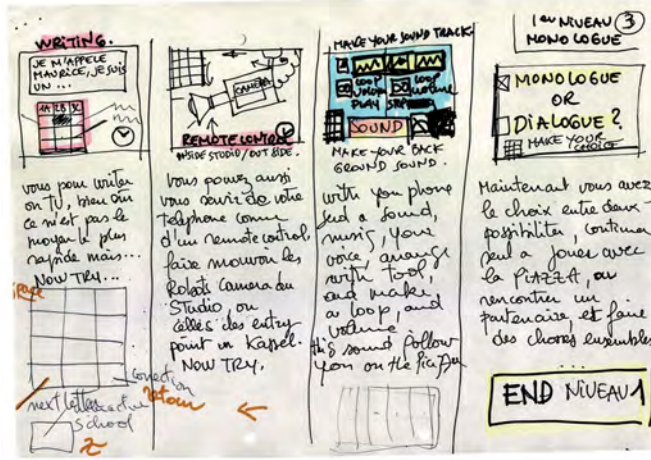 WRITING.
JE M'APPELE
MAURICE, JE SUIS
UN ...
1A 2B 3C
vous pouv writer
on TV, bien sur
ce n'est pas le
moyen le plus
rapide mais...
NOW TRY...
correction
retour
next letter
School
CAMERA
REMOTE CONTROL
INSIDE STUDIO/OUT SIDE.
Vous pouvez aussi
vous servir de votre
telephone comme
d'un remote control,
faire mouvoir les
Robots Camera du
STudio, ou
celles des entry
point in Kassel.
NOW TRY.
MAKE YOUR SOUND TRACK.
LOOP
LOOP
VOLUME
PLAY
SOUND
MAKE YOUR BACK
GROUND SOUND.
with you phone
send a sound,
music, your
voice, arrange
with tool,
and make
a loop, and
volume
this sound follow
you on the Piazza
1er NIVEAU 3
MONOLOGUE
MONOLOGUE
OR
DIALOGUE?
MAKE YOUR
CHOICE
Maintenant vous avez
le choix entre deux
possibilites, continuer
seul a jouer avec
la PiAZZA, ou
rencontrer un
partenaire, et faire
des choses ensembles
...
END NIVEAU 1